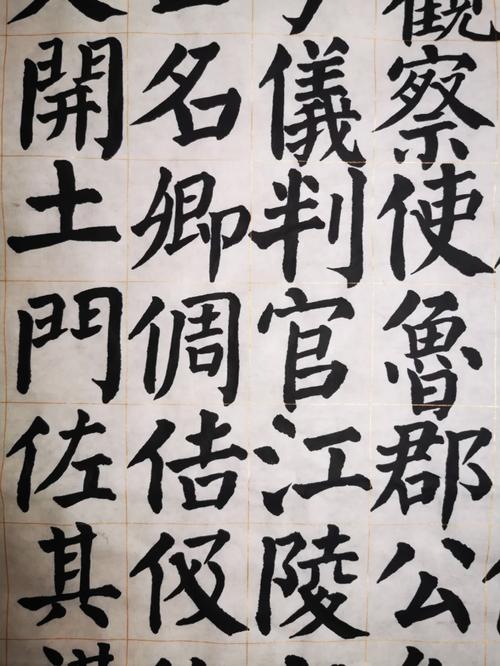 觀察使魯郡公
儀判官江陵
名卿倜佶伋
開土門佐其